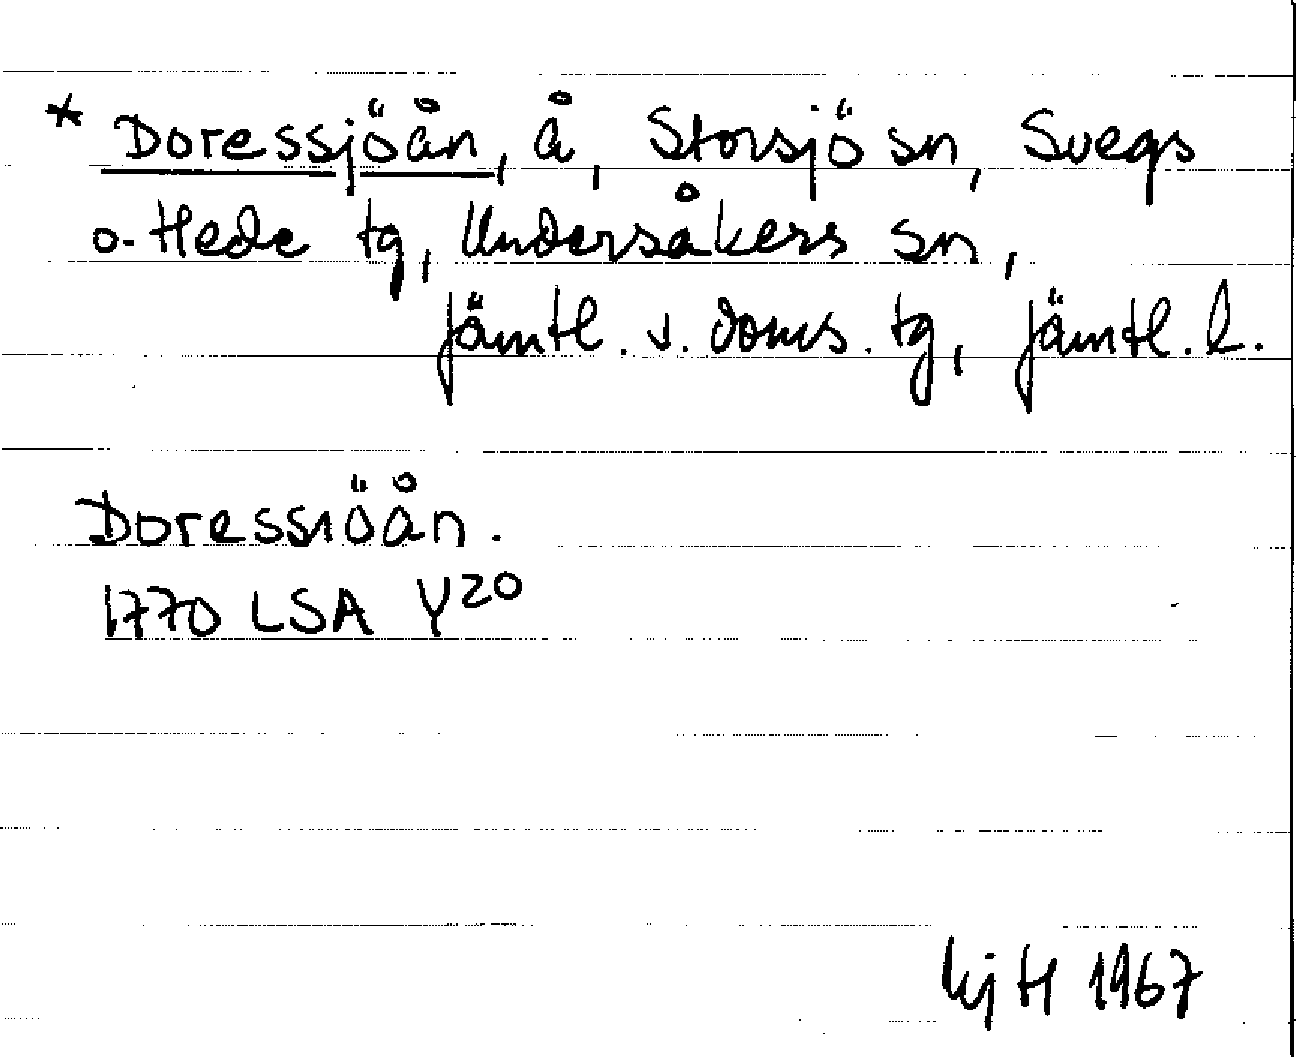 * Doressjöån, å, Storsjö sn, Svegs
o. Hede tg, Undersåkers sn,
Jämtl. v. doms. tg, Jämtl. l.
Doressiöån.
1770 LSA Y20
H 1967